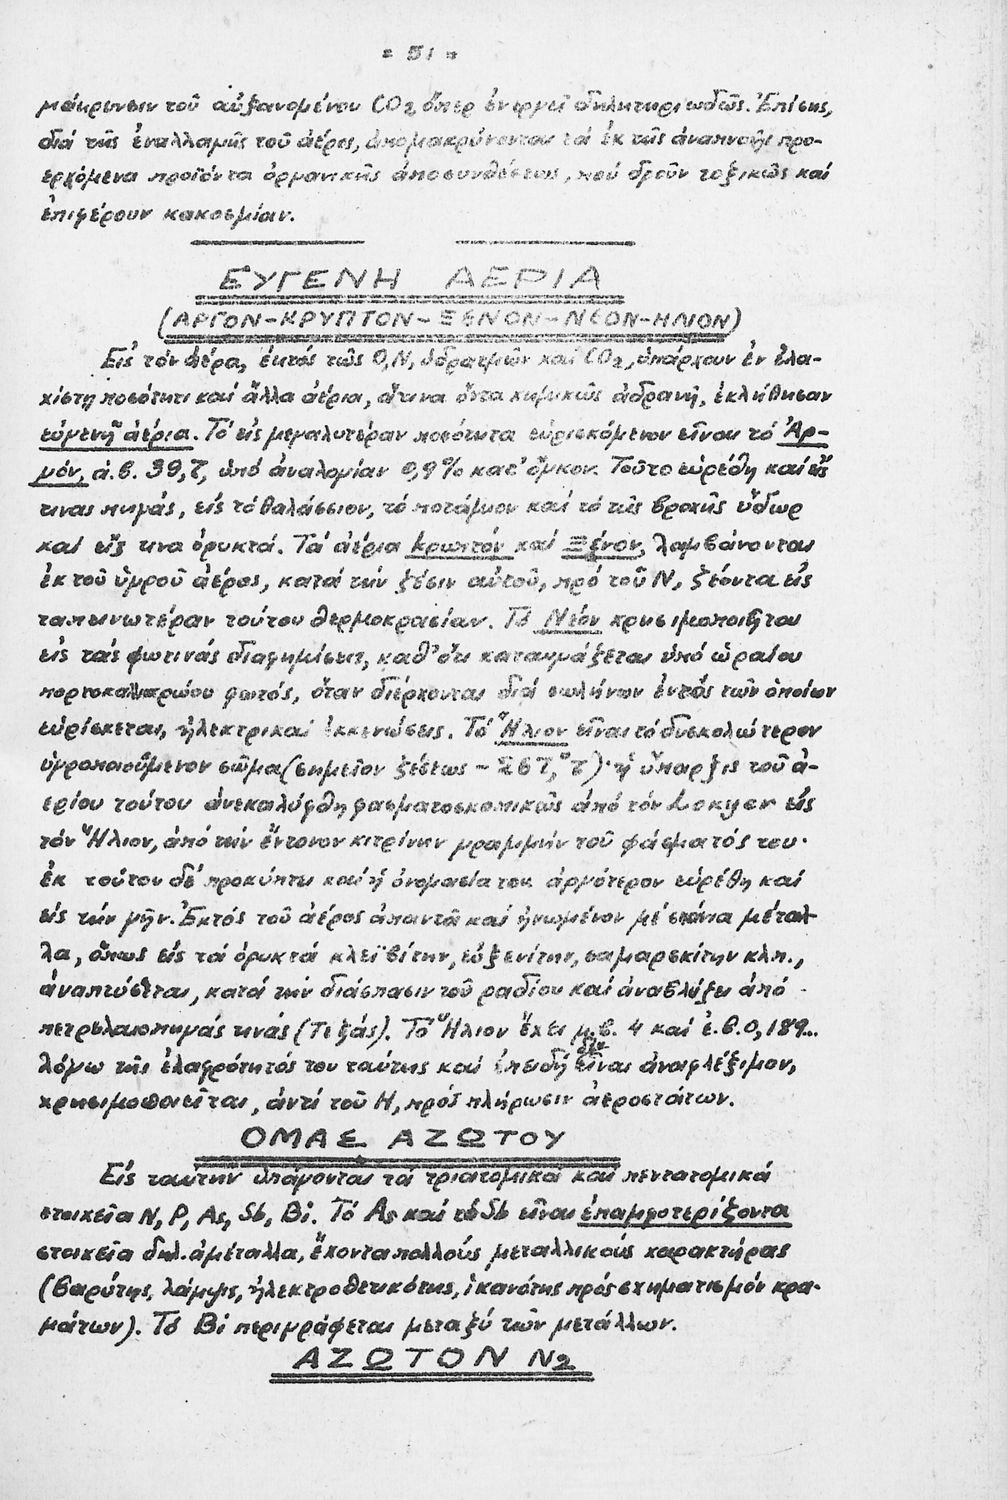 = 51 =
μάκρυνσιν τοῦ αὐξανομένου CO2, ὅπερ ἐνεργεῖ δηλητηριωδῶς. Ἐπίσης,
διά τῆς ἐναλλαγῆς τοῦ ἀέρος, ἀπομακρύνονται τά ἐκ τῆς ἀναπνοῆς προ-
ερχόμενα προϊόντα ὀργανικῆς ἀποσυνθέσεως, πού δροῦν τοξικῶς καί
ἐπιφέρουν κακοσμίαν.
ΕΥΓΕΝΗ ΑΕΡΙΑ
(ΑΡΓΟΝ-ΚΡΥΠΤΟΝ-ΞΕΝΟΝ-ΝΕΟΝ-ΗΛΙΟΝ)
Εἰς τόν ἀέρα, ἐκτός τῶν O, N, ὑδρατμῶν καί CO2, ὑπάρχουν ἐν ἐλα-
χίστῃ ποσότητι καί ἄλλα ἀέρια, ἅτινα ὄντα χημικῶς ἀδρανῆ, ἐκλήθησαν
εὐγενῆ ἀέρια. Τό εἰς μεγαλυτέραν ποσότητα εὑρισκόμενον εἶναι τό Ἀρ-
γόν, ἀ.β. 39,7, ὑπό ἀναλογίαν 0,9% κατ' ὄγκον. Τοῦτο εὑρέθη καί εἴς
τινας πηγάς, εἰς τό θαλάσσιον, τό ποτάμιον καί τό τῆς βροχῆς ὕδωρ
καί εἴς τινα ὀρυκτά. Τά ἀέρια κρυπτόν καί Ξένον, λαμβάνονται
ἐκ τοῦ ὑγροῦ ἀέρος, κατά τήν ζέσιν αὐτοῦ, πρό τοῦ N, ζέοντα εἰς
ταπεινωτέραν τούτου θερμοκρασίαν. Τό Νέον χρησιμοποιεῖται
εἰς τάς φωτινάς διαφημίσεις, καθ' ὅτι καταυγάζεται ὑπό ὡραίου
πορτοκαλλιχρώου φωτός, ὅταν διέρχωνται διά σωλήνων ἐντός τῶν ὁποίων
εὑρίσκεται, ἠλεκτρικαί ἐκκενώσεις. Τό Ἥλιον εἶναι τό δυσκολώτερον
ὑγροποιούμενον σῶμα (σημεῖον ζέσεως -267,°7)· ἡ ὕπαρξις τοῦ ἀ-
ερίου τούτου ἀνεκαλύφθη φασματοσκοπικῶς ἀπό τόν Lokyer εἰς
τόν Ἥλιον, ἀπό τήν ἔντονον κιτρίνην γραμμήν τοῦ φάσματός του·
ἐκ τούτου δέ προκύπτει καί ἡ ὀνομασία του. ἀργότερον εὑρέθη καί
εἰς τήν γῆν. Ἐκτός τοῦ ἀέρος ἀπαντᾶ καί ἡνωμένον μέ σπάνια μέταλ-
λα, ὅπως εἰς τά ὀρυκτά κλεϊβίτην, εὐξενίτην, σαμαρσκίτην κλπ.,
ἀναπτύσσεται, κατά τήν διάσπασιν τοῦ ραδίου καί ἀναβλύζει ἀπό
πετρελαιοπηγάς τινάς (Τεξάς). Τό Ἥλιον ἔχει μ.β. 4 καί ἐ.β. 0,189...
λόγω τῆς ἐλαφρότητός του ταύτης καί ἐπειδή δέν εἶναι ἀναφλέξιμον,
χρησιμοποιεῖται, ἀντί τοῦ H, πρός πλήρωσιν ἀεροστάτων.
ΟΜΑΣ ΑΖΩΤΟΥ
Εἰς ταύτην ὑπάγονται τά τριατομικά καί πεντατομικά
στοιχεῖα N, P, As, Sb, Bi. Τό As καί τό Sb εἶναι ἐπαμφοτερίζοντα
στοιχεῖα δηλ. ἀμέταλλα, ἔχοντα πολλούς μεταλλικούς χαρακτήρας
(βαρύτης, λάμψις, ἠλεκτροθετικότης, ἱκανότης πρός σχηματισμόν κρα-
μάτων). Τό Bi περιγράφεται μεταξύ τῶν μετάλλων.
ΑΖΩΤΟΝ N2